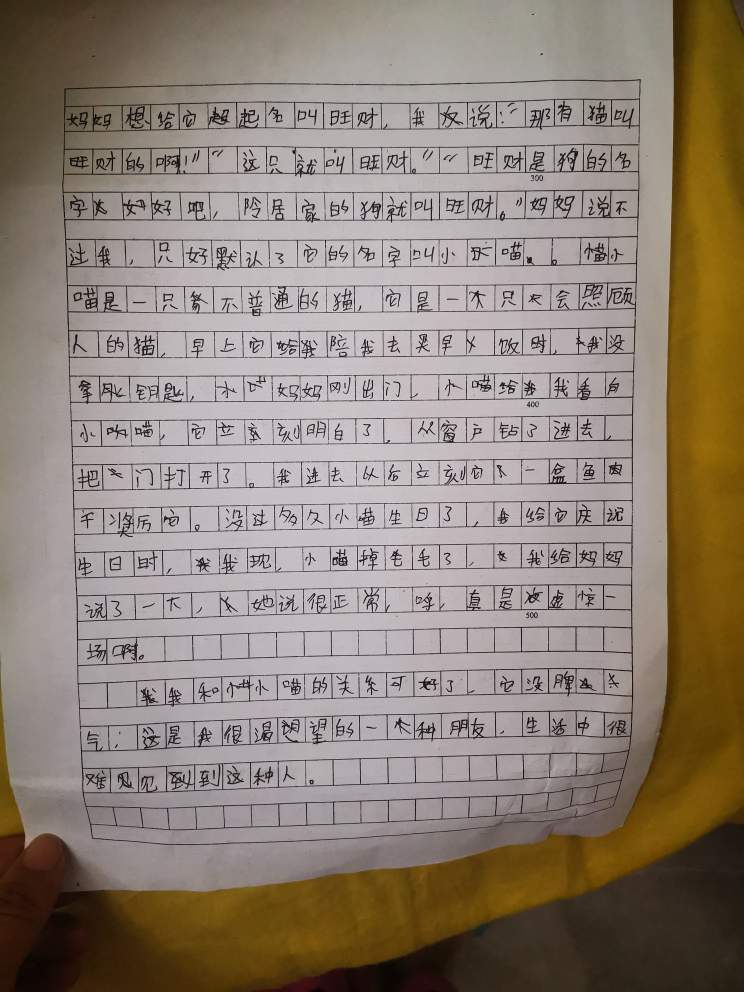 妈妈想给它起名叫旺财，我说：“那有猫叫
旺财的啊！”“这只就叫旺财。”“旺财是狗的名
300
字好吧，阾居家的狗就叫旺财。”妈妈说不
过我，只好默认了它的名字叫小喵。小
喵是一只不普通的猫，它是一只会照顾
人的猫，早上它陪我去买早饭时，我没
拿钥匙，妈妈刚出门，小喵给我看自
400
小喵，它立刻明白了，从窗户钻了进去，
把门打开了。我进去以后立刻它一盒鱼肉
干奖厉它。没过多久小喵生日了，我给它庆祝
生日时，我现，小喵掉毛了，我给妈妈
说了一下，她说很正常，呼，真是虚惊一
500
场啊。
我和小喵的关系可好了，它没脾
气，这是我很渴望的一种朋友，生活中很
难见到这种人。